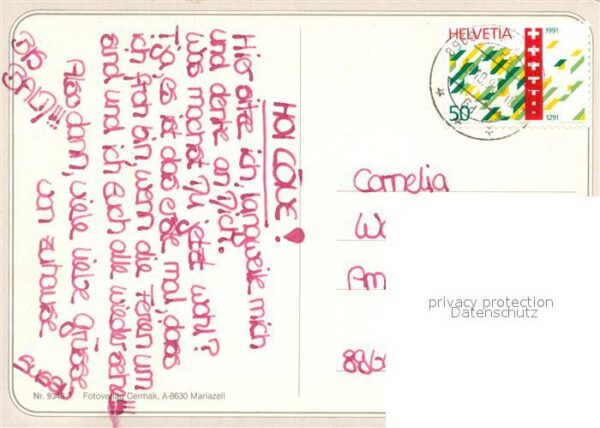 HOI LOVE!
Hier sitze ich, langweile mich
und denke an Dich.
Was machst Du jetzt wohl?
Tja, es ist das erste mal, dass
ich froh bin wenn die Ferien um
sind und ich Euch alle wiedersehe!!!
Also dann, viele liebe grüsse
von zuhause
BIS
Cornelia
Wa
Am
8960
HELVETIA
1991
50
1291
privacy protection
Datenschutz
Nr. 934
Fotoverlag Cermak, A-8630 Mariazell